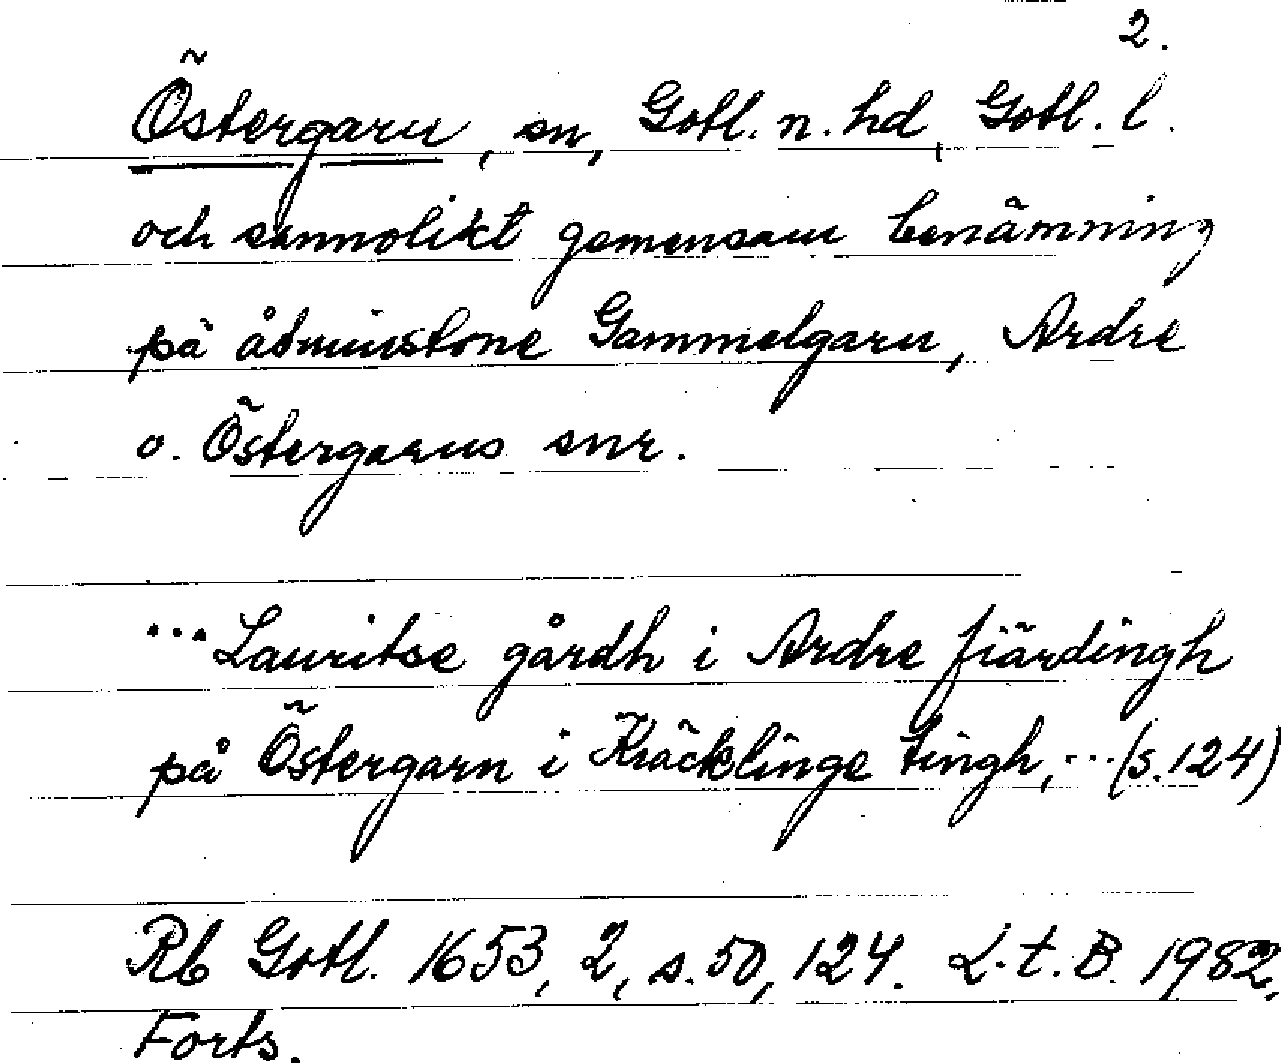 2.
Östergarn, sn, Gotl. n. hd, Gotl. l.
och sannolikt gemensam benämning
på åtminstone Gammelgarn, Ardre
o. Östergarns snr.
...Lauritse gårdh i Ardre fiärdingh
på Östergarn i Kräcklinge tingh, ... (s. 124)
Rb Gotl. 1653, 2, s. 50, 124. L.t.B. 1982.
Forts.